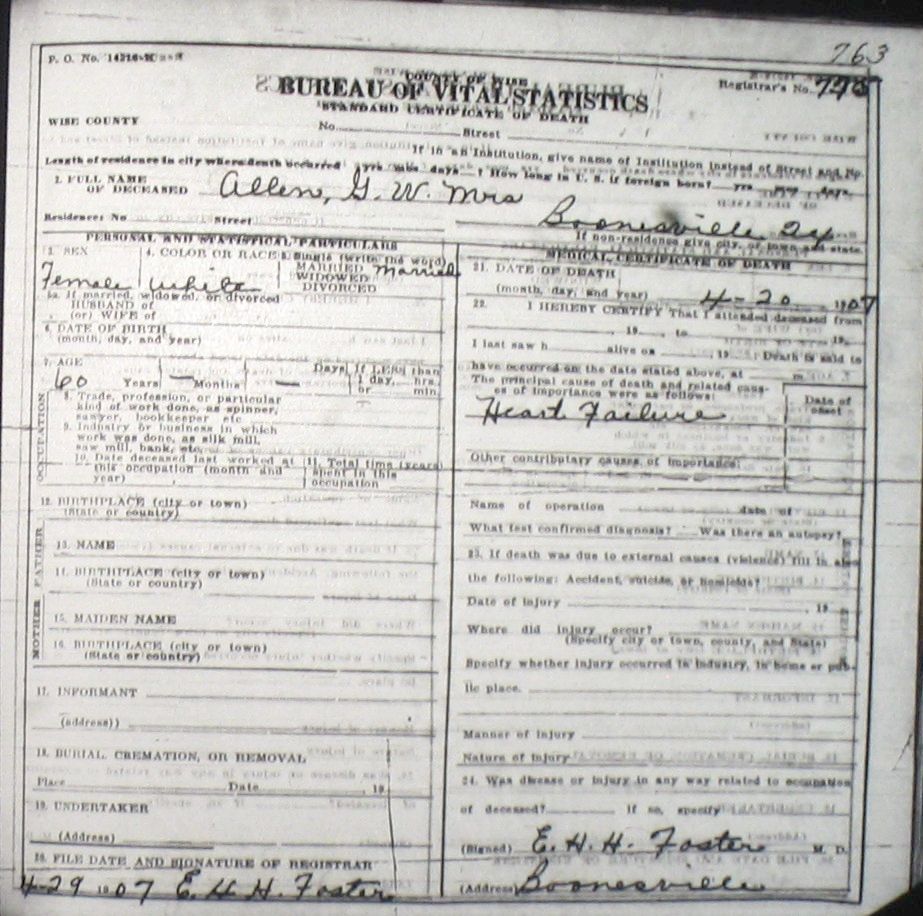 763
F. O. No. 14216-M
COUNTY OF WISE
BUREAU OF VITAL STATISTICS
Registrar's No. 775
STANDARD CERTIFICATE OF DEATH
WISE COUNTY
No. Street
If in an Institution, give name of Institution instead of Street and No.
Length of residence in city where death occurred yrs mos days ? How long in U. S. if foreign born? yrs mos days.
1. FULL NAME OF DECEASED Allen, G. W. Mrs
Residence: No Street Boonesville
If non-residence give city, or town and state.
PERSONAL AND STATISTICAL PARTICULARS
3. SEX Female
4. COLOR OR RACE White
5. Single (write the word) MARRIED WIDOWED DIVORCED Married
5a. If married, widowed, or divorced
HUSBAND of
(or) WIFE of
6. DATE OF BIRTH
(month, day, and year)
7. AGE
60 Years — Months — Days If LESS than 1 day, hrs. or min.
OCCUPATION
8. Trade, profession, or particular
kind of work done, as spinner,
sawyer, bookkeeper etc
9. Industry or business in which
work was done, as silk mill,
saw mill, bank, etc.
10. Date deceased last worked at
this occupation (month and
year)
11. Total time (years)
spent in this
occupation
12. BIRTHPLACE (city or town)
(State or country)
FATHER
13. NAME
14. BIRTHPLACE (city or town)
(State or country)
MOTHER
15. MAIDEN NAME
16. BIRTHPLACE (city or town)
(State or country)
17. INFORMANT
(address))
18. BURIAL, CREMATION, OR REMOVAL
Place Date , 19
19. UNDERTAKER
(Address)
20. FILE DATE AND SIGNATURE OF REGISTRAR
4-29 1907 E. H. H. Foster
MEDICAL CERTIFICATE OF DEATH
21. DATE OF DEATH
(month, day, and year) 4-20 1907
22. I HEREBY CERTIFY That I attended deceased from
, 19 , to 19
I last saw h alive on , 19 . Death is said to
have occurred on the date stated above, at m.
The principal cause of death and related causes of importance were as follows:
Date of onset
Heart Failure
Other contributory causes of importance:
Name of operation date of
What test confirmed diagnosis? Was there an autopsy?
23. If death was due to external causes (violence) fill in also
the following: Accident, suicide, or homicide?
Date of injury , 19
Where did injury occur?
(Specify city or town, county, and State)
Specify whether injury occurred in industry, in home or pub-
lic place.
Manner of injury
Nature of injury
24. Was disease or injury in any way related to occupation
of deceased? If so, specify
(Signed) E. H. H. Foster M. D.
(Address) Boonesville